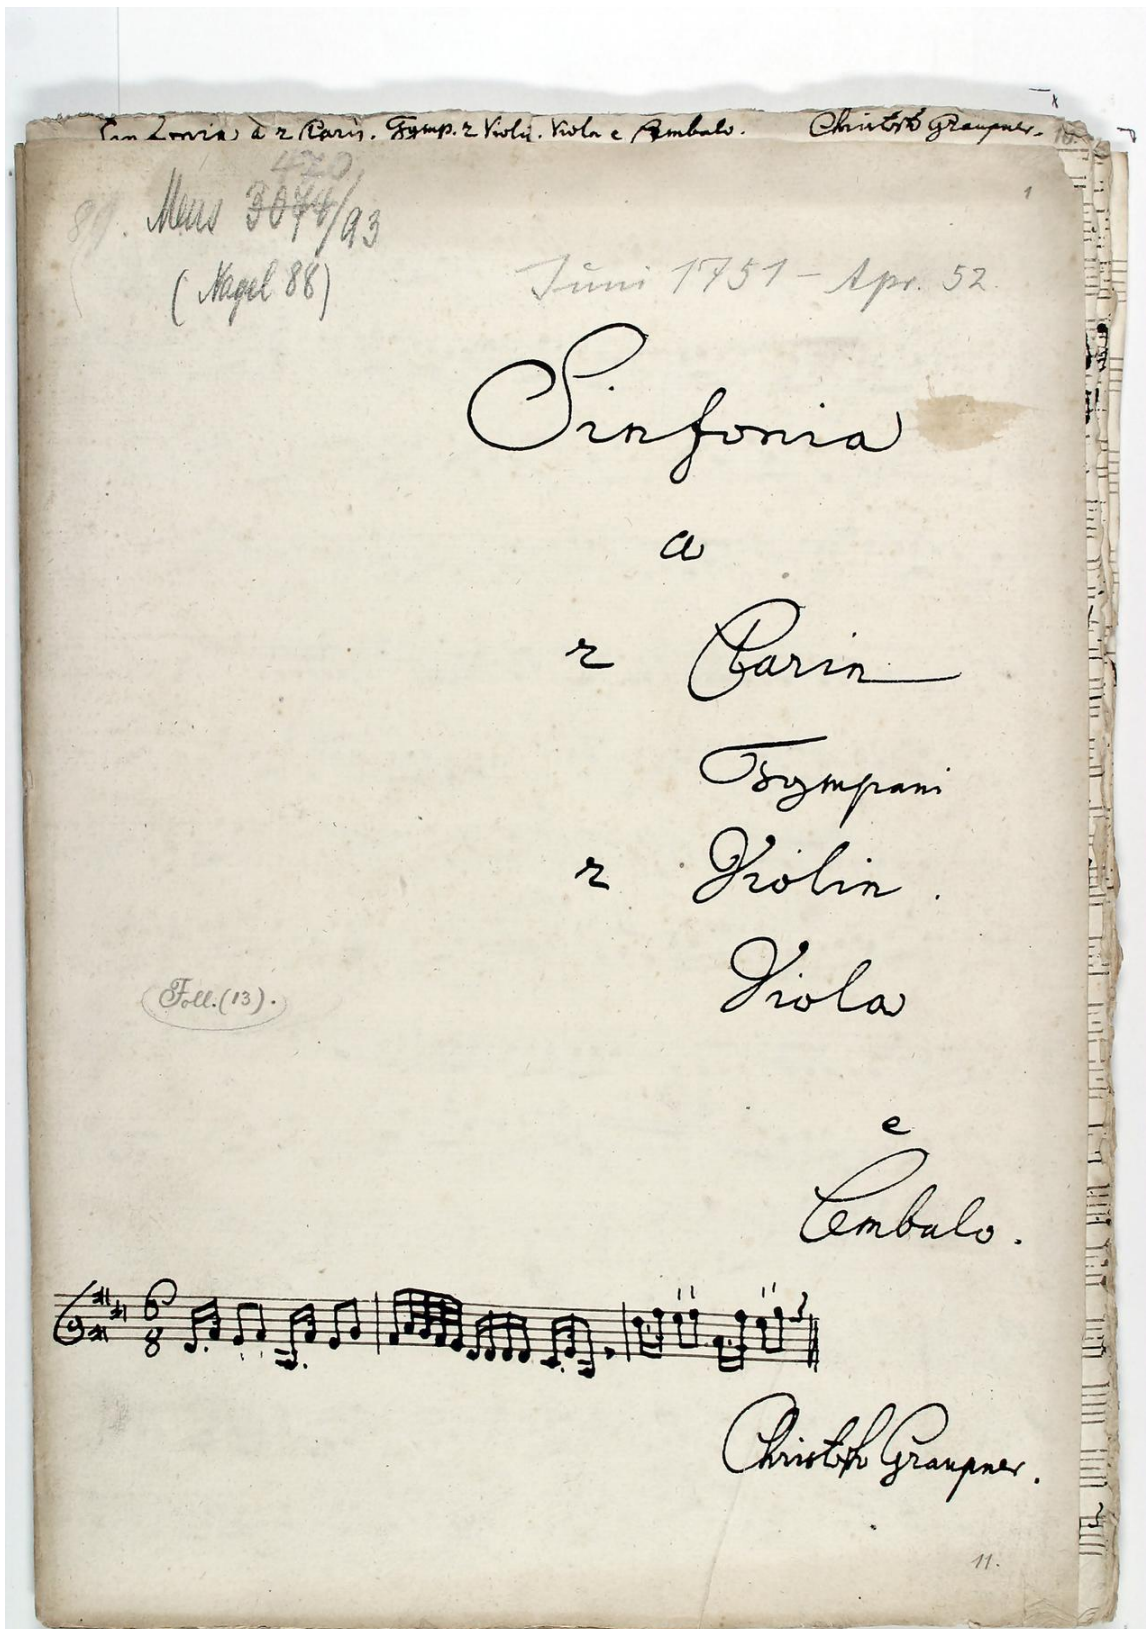 Sinfonia à 2 Clarin. Tymp. 2 Violin. Viola e Cembalo. Christoph Graupner.
420
Mus 3074/93
(Nagel 88)
1
Juni 1751 – Apr. 52.
Sinfonia
a
2 Clarin
Tympani
2 Violin.
Viola
Foll. (13).
e
Cembalo.
6
8
Christoph Graupner.
11.